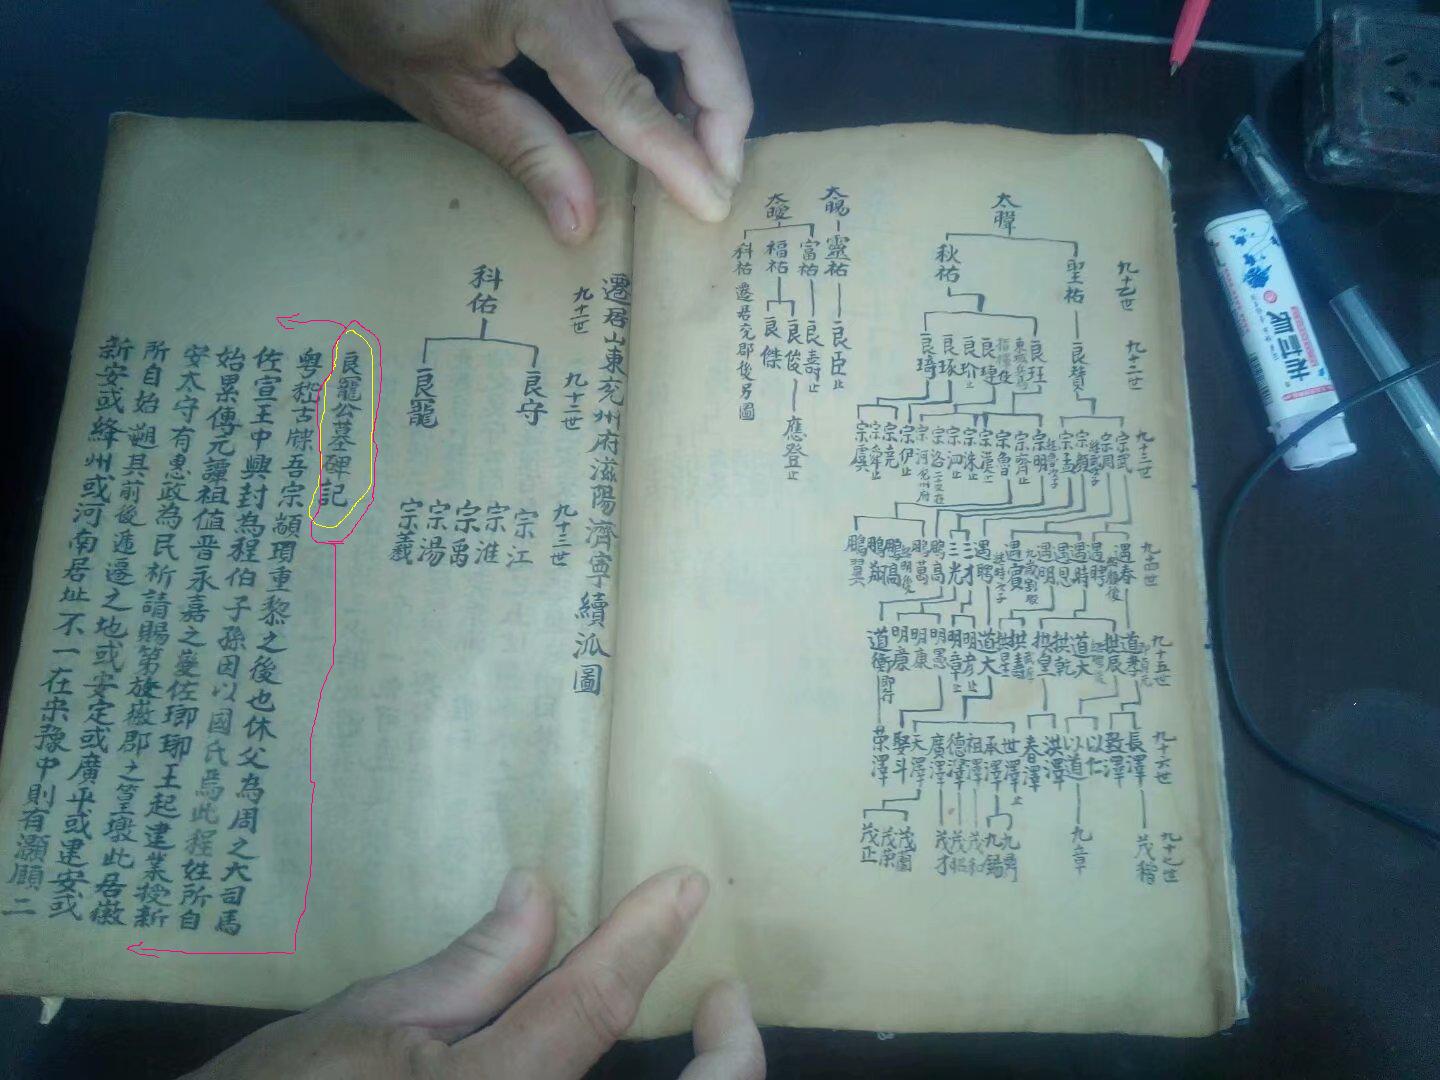 九十七世
九十二世
九十三世
九十四世
九十五世
九十六世
九十七世
太暲
聖祐
秋祐
良贊
良玨
良璉
良玠止
良琢
良琦
宗武
宗周
宗顏
宗孟
宗明
宗齊止
宗魯
宗洙止
宗泗止
宗伊止
宗堯
宗虞
遇春
遇聘
遇時
遇恩
遇明
遇賓
遇聘
三才
三光
鵬高
鵬萬
鵬翔
鵬翼
道大
拱辰
拱乾
明彦止
明章止
明愚
明康
道衝
長澤
以仁
以道
洪澤
春澤
世澤止
承澤
祖澤
德澤
廣澤
天澤
榮澤
九章
九疇
九錫
茂才
茂圃
茂榮
茂正
太暘
靈祐
良臣止
太曖
富祐
良壽止
福祐
良俊
應登止
良傑
科祐遷居兖郡後另圖
遷居山東兖州府滋陽濟寧續泒圖
九十一世
九十二世
九十三世
科佑
良守
良寵
宗江
宗淮
宗禹
宗湯
宗羲
良寵公墓碑記
粤嵇古牒吾宗顓頊重黎之後也休父為周之大司馬
佐宣王中興封為程伯子孫因以國氏焉此程姓所自
始累傳元譚祖值晋永嘉之變佐瑯琊王起建業授新
安太守有惠政為民祈請賜第於徽郡之篁墩此居徽
所自始遡其前後遞遷之地或安定或廣平或建安或
新安或絳州或河南居址不一在宋豫中則有灝頤二
老村長